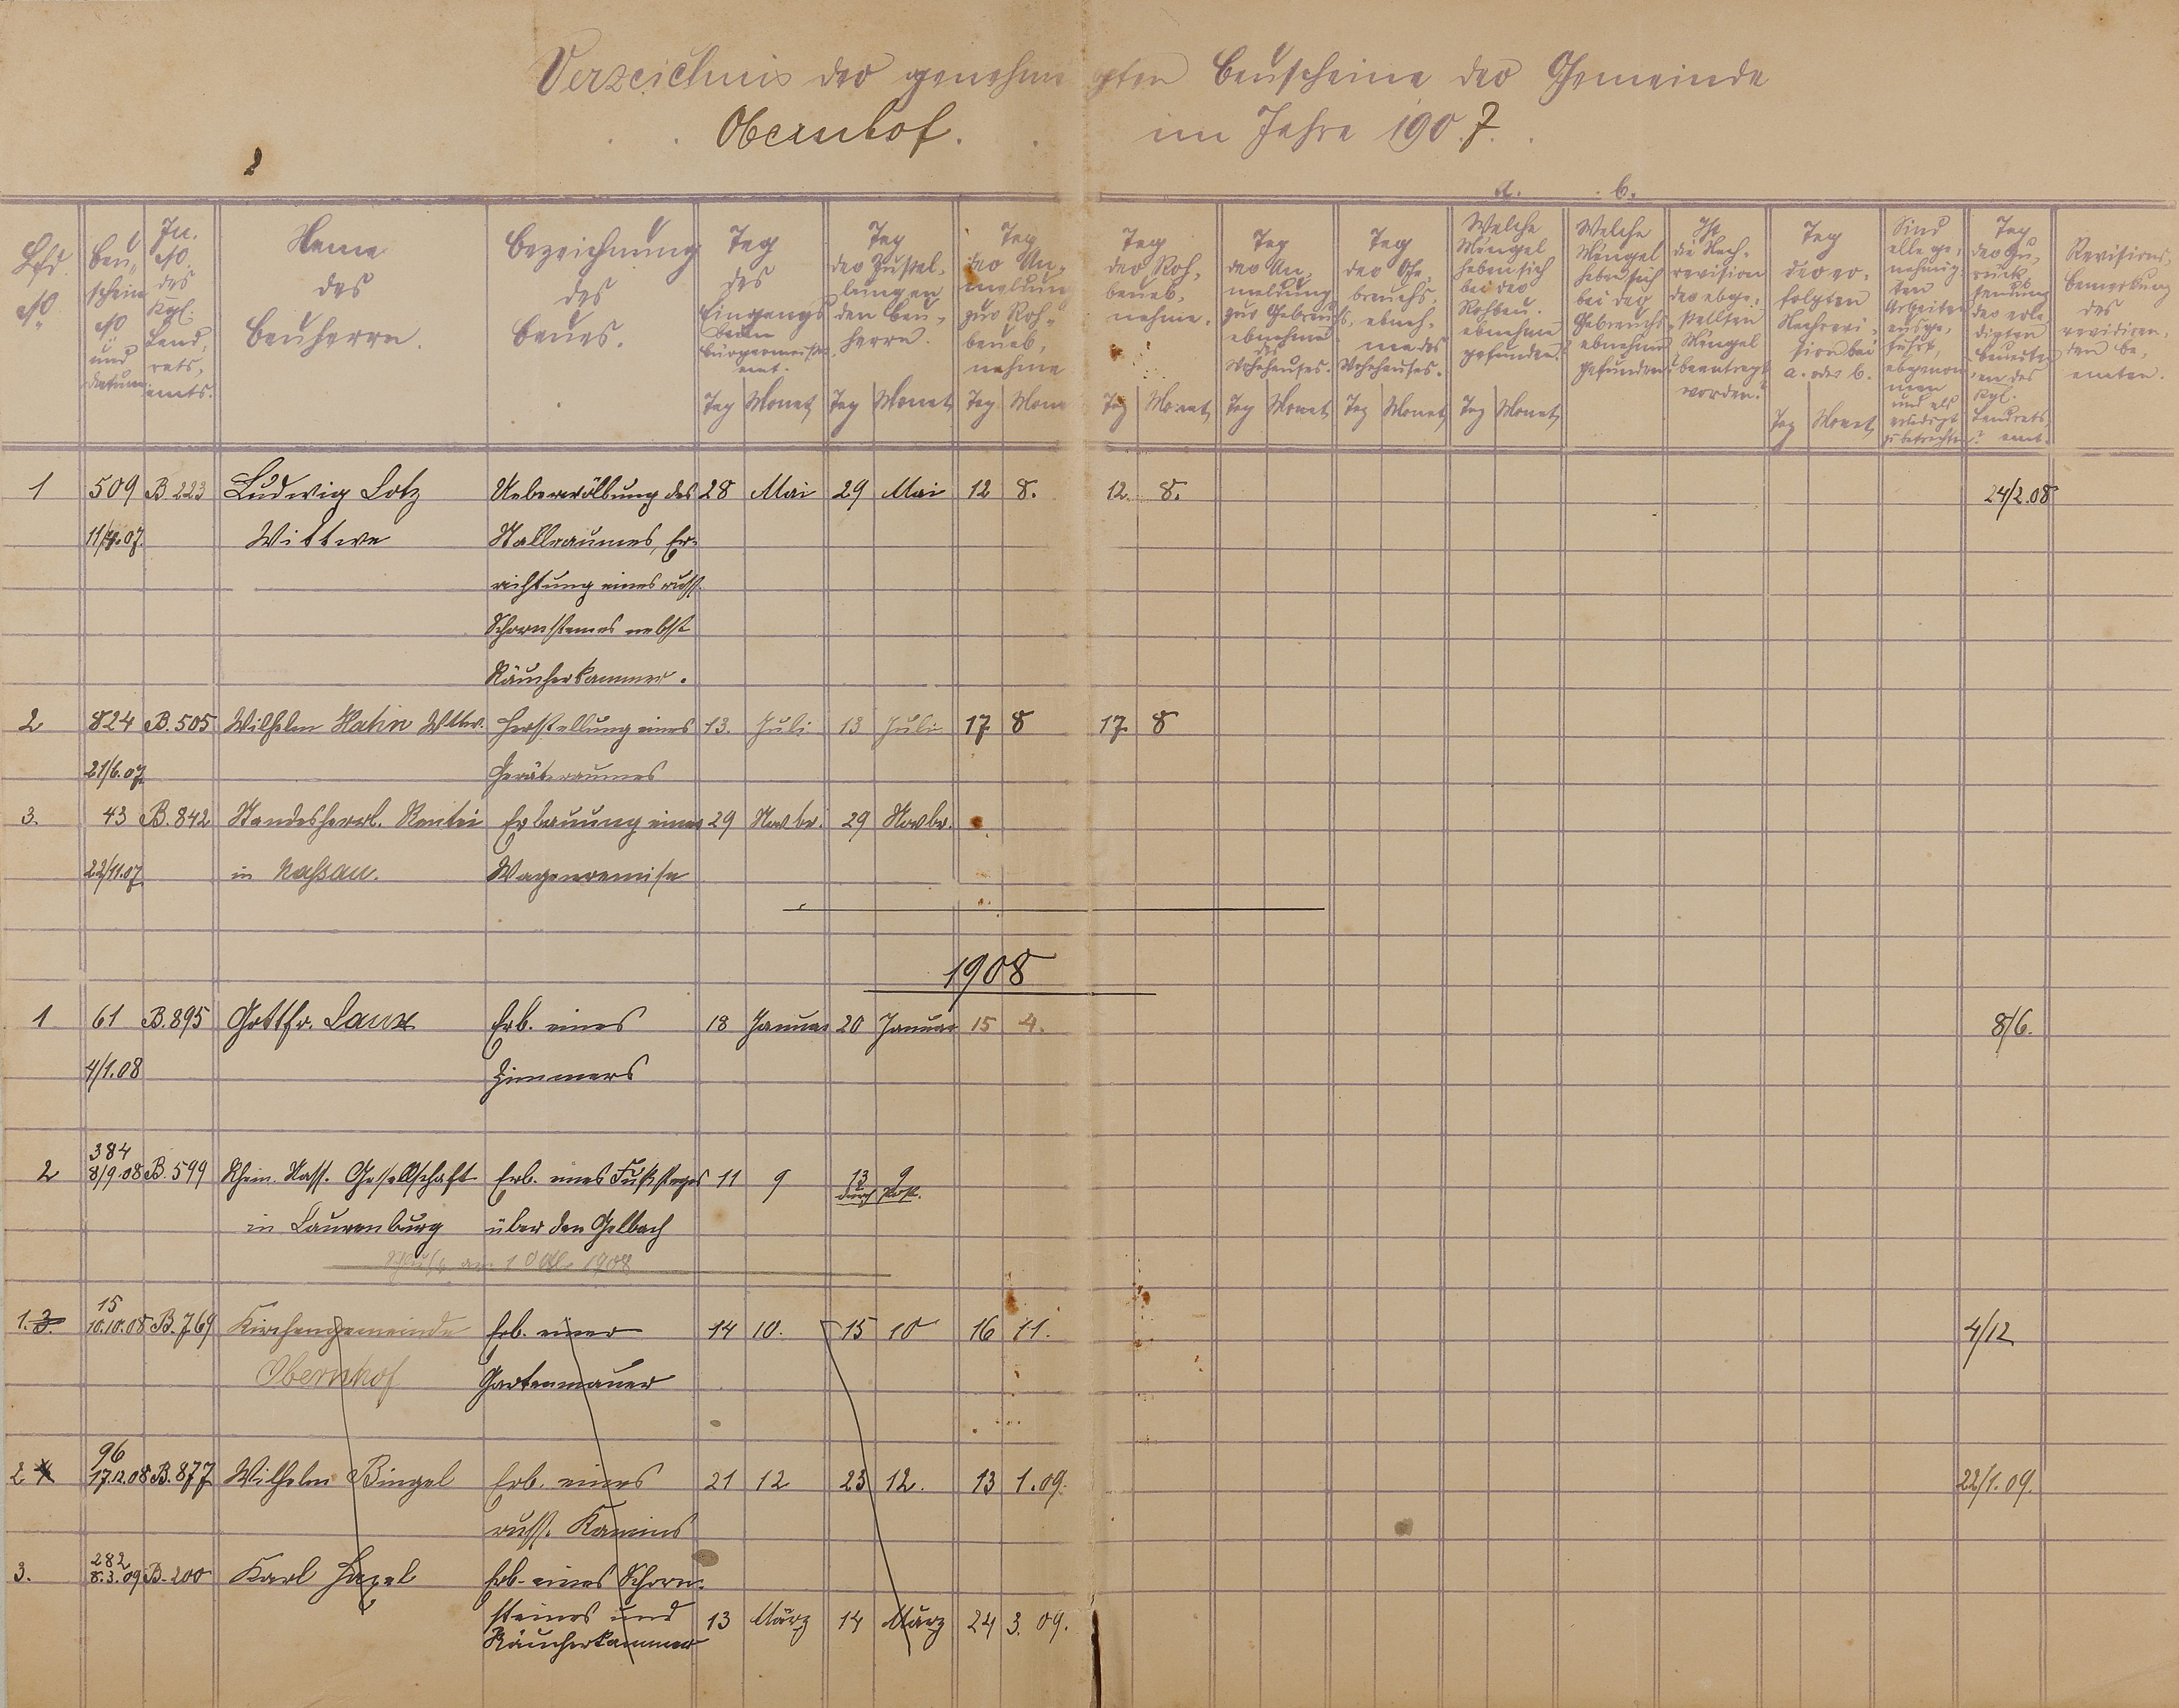 Verzeichnis der genehmigten Bauscheine der Gemeinde
Obernhof. im Jahre 1907.
a. b.
Lfd. No.
Bauschein No und Datum
Jn. No. des Kgl. Landrats, amts.
Name des Bauherrn.
Bezeichnung des Baues.
Tag des Eingangs beim Bürgermeister, amt.
Tag der Zustellung an den Bauherrn.
Tag der Anmeldung zur Rohbauab, nahme
Tag der Rohbauab, nahme.
Tag der Anmeldung zur Gebrauchs, abnahme des Wohnhauses.
Tag der Gebrauchs, abnahme des Wohnhauses.
Welche Mängel haben sich bei der Rohbau. abnahme gefunden?
Welche Mängel haben sich bei der Gebrauchs abnahme gefunden?
Ist die Nachrevision der abgestellten Mängel beantragt worden?
Tag der erfolgten Nachrevision bei a. oder b.
Sind alle genehmigten Arbeiten ausgeführt, abgenommen und als erledigt zu betrachten?
Tag der Zurücksendung der erledigten Bauakten an das Kgl. Landrats, amt.
Revisions, bemerkung des revidirenden Beamten.
Tag Monat Tag Monat Tag Mona Tag Monat Tag Monat Tag Monat Tag Monat Tag Monat
1 509 B. 223 Ludwig Lotz Ueberwölbung des 28 Mai 29 Mai 12 8. 12. 8. 24/2.08
11/4.07. Wittwe Stallraumes, Er-
richtung eines russ.
Schornsteines nebst
Räucherkammer.
2 824 B. 505 Wilhelm Hahn Wttw. Herstellung eines 13. Juli 13 Juli 17 8 17. 8
21/6.07. Geräteraumes
3. 43 B. 842 Standesherrl. Rentei Erbauung einer 29 Novbr. 29 Novbr.
22/11.07 in Nassau. Wagenremise
1908
1 61 B. 895 Gottfr. Laux Erb. eines 18 Januar 20 Januar 15 4. 8/6.
4/1.08 Zimmers
384
2 8/9.08 B. 599 Rhein. Nass. Gesellschaft Erb. eines Fußsteges 11 9 13 9
durch Post.
in Laurenburg über den Gelbach
Schluß am 1 Okt. 1908
15
1. 3. 10.10.08 B. 769 Kirchengemeinde Erb. einer 14 10. 15 10 16 11. 4/12
Obernhof Gartenmauer
96
2 4 17.12.08 B. 877 Wilhelm Bingel Erb. eines 21 12 23 12. 13 1.09. 22/1.09.
russ. Kamins
282
3. 8.3.09 B. 200 Karl Hezel Erb. eines Schorn-
steines und 13 März 14 März 24 3. 09.
Räucherkammer